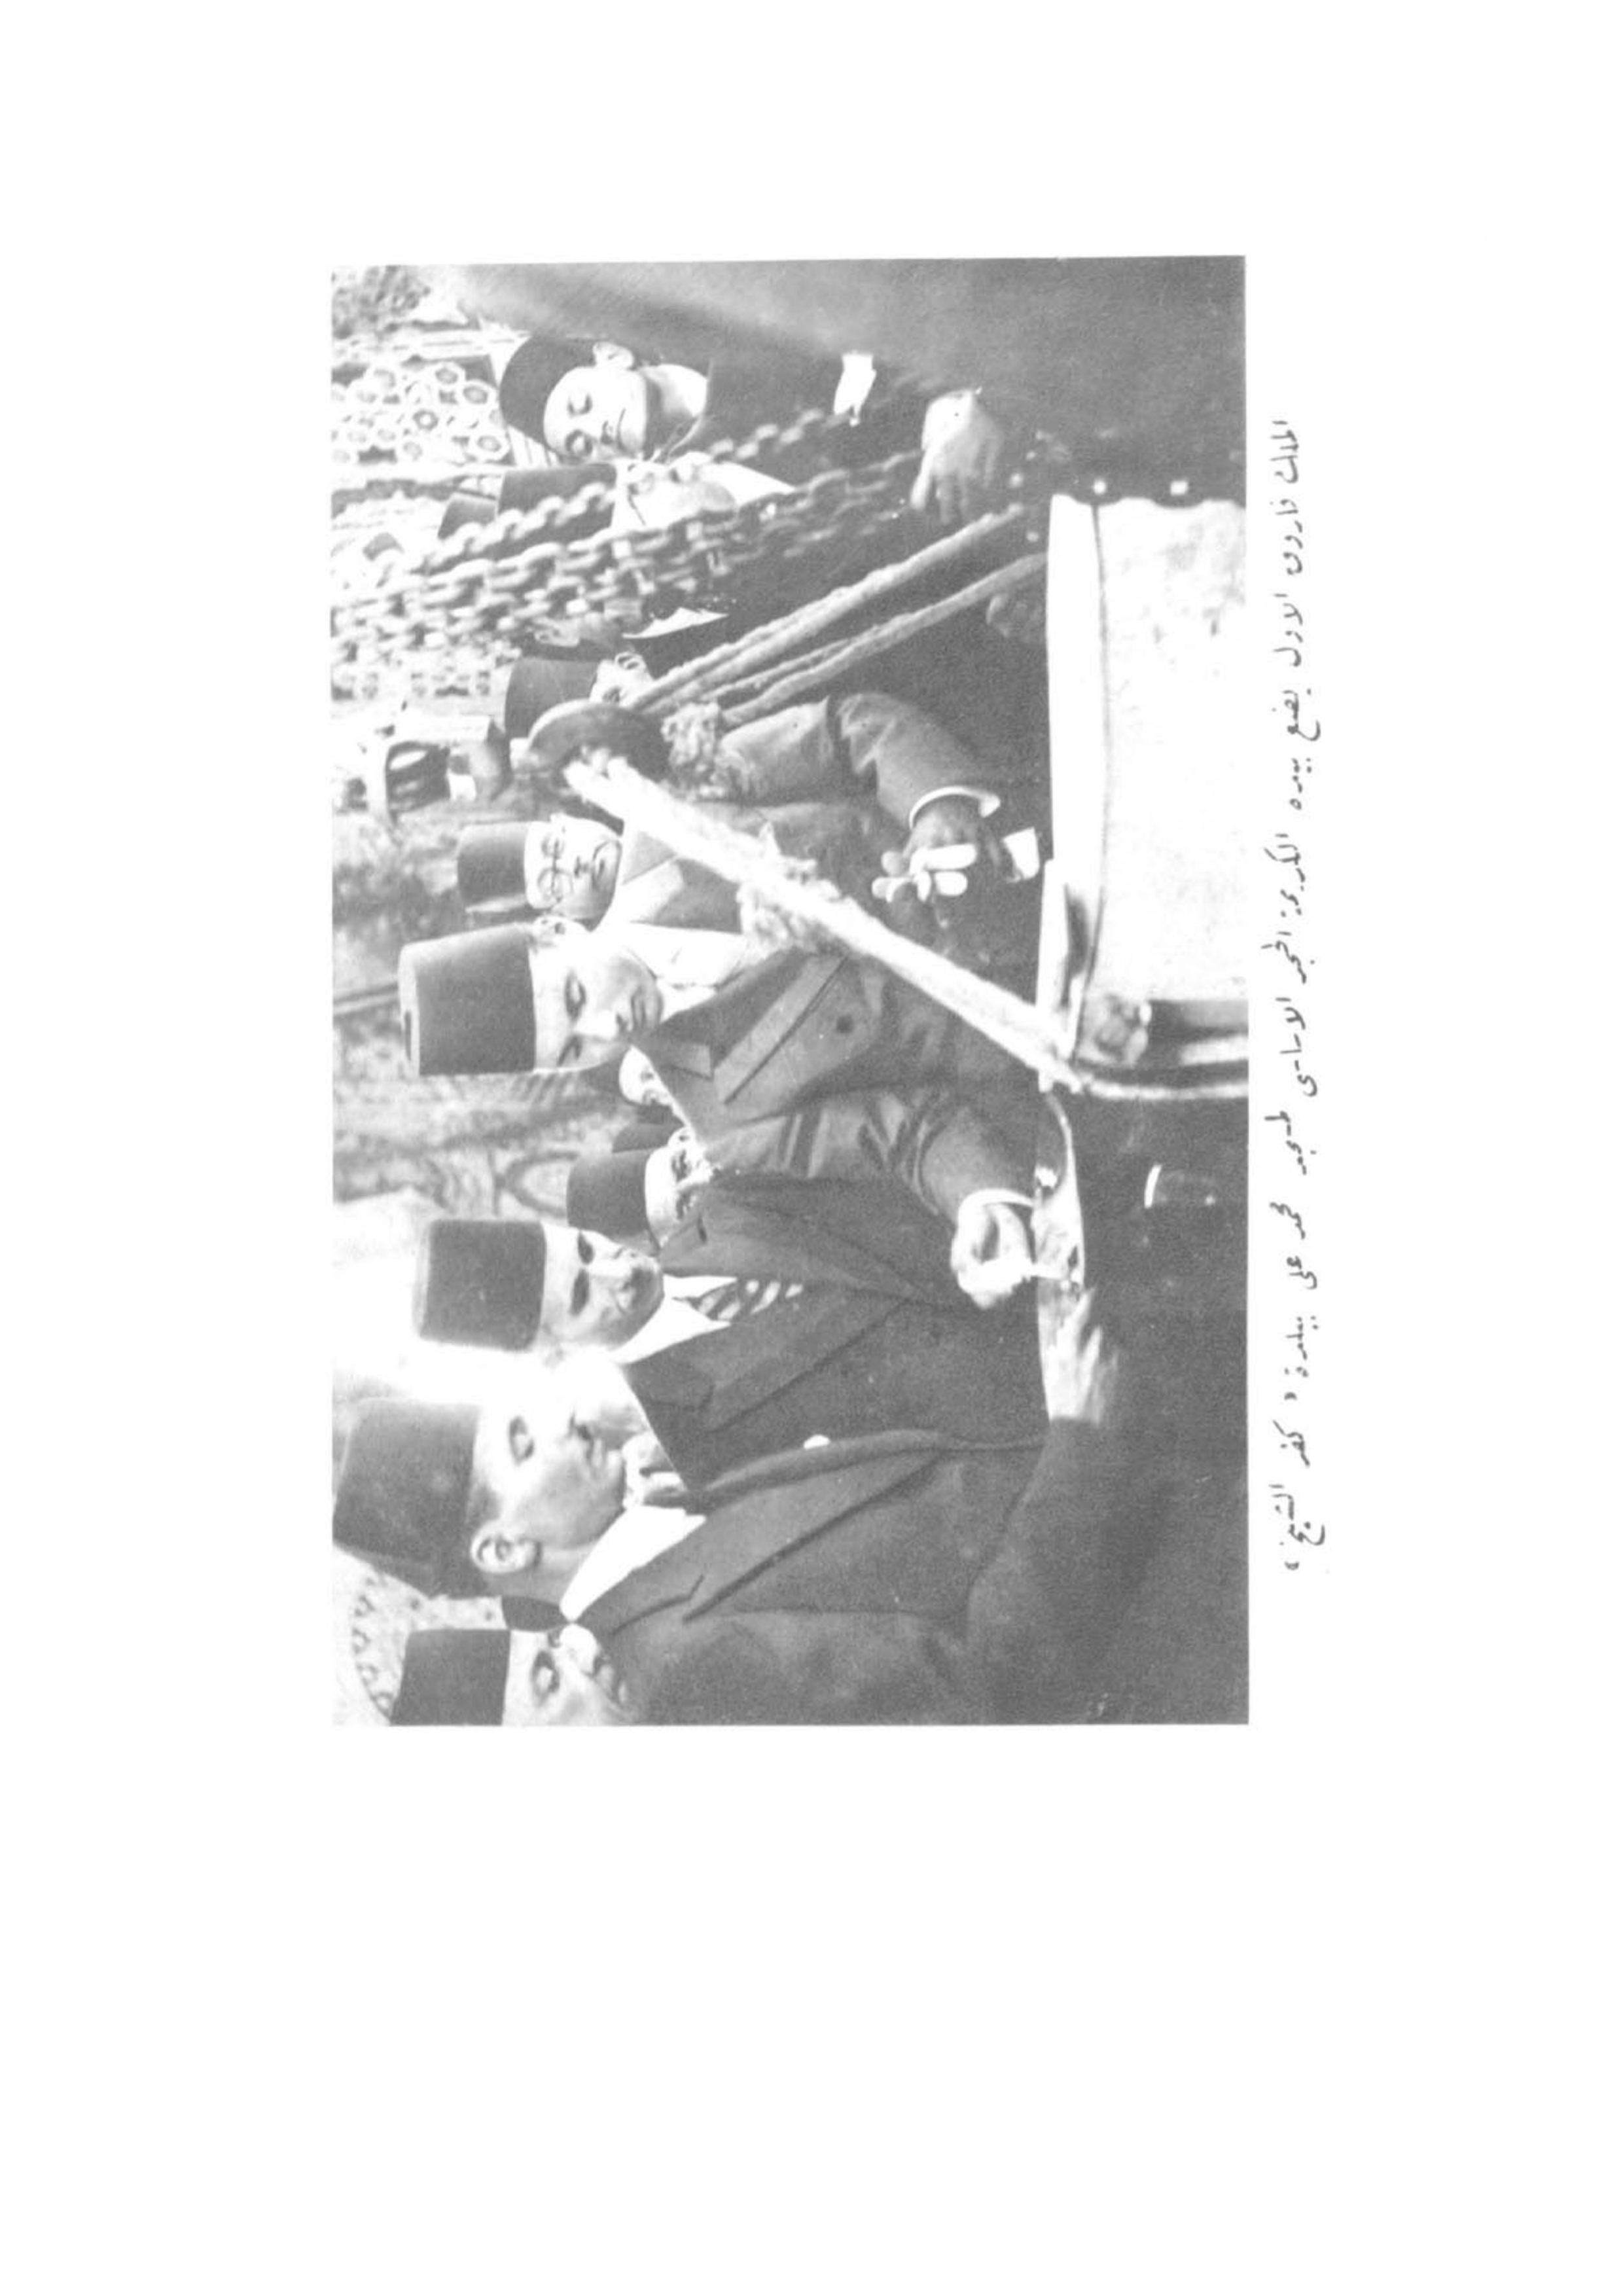 الملك فاروق الاول يضع بيده الكريمة الحجر الاساسى لمسجد محمد على ببلدة « كفر الشيخ »